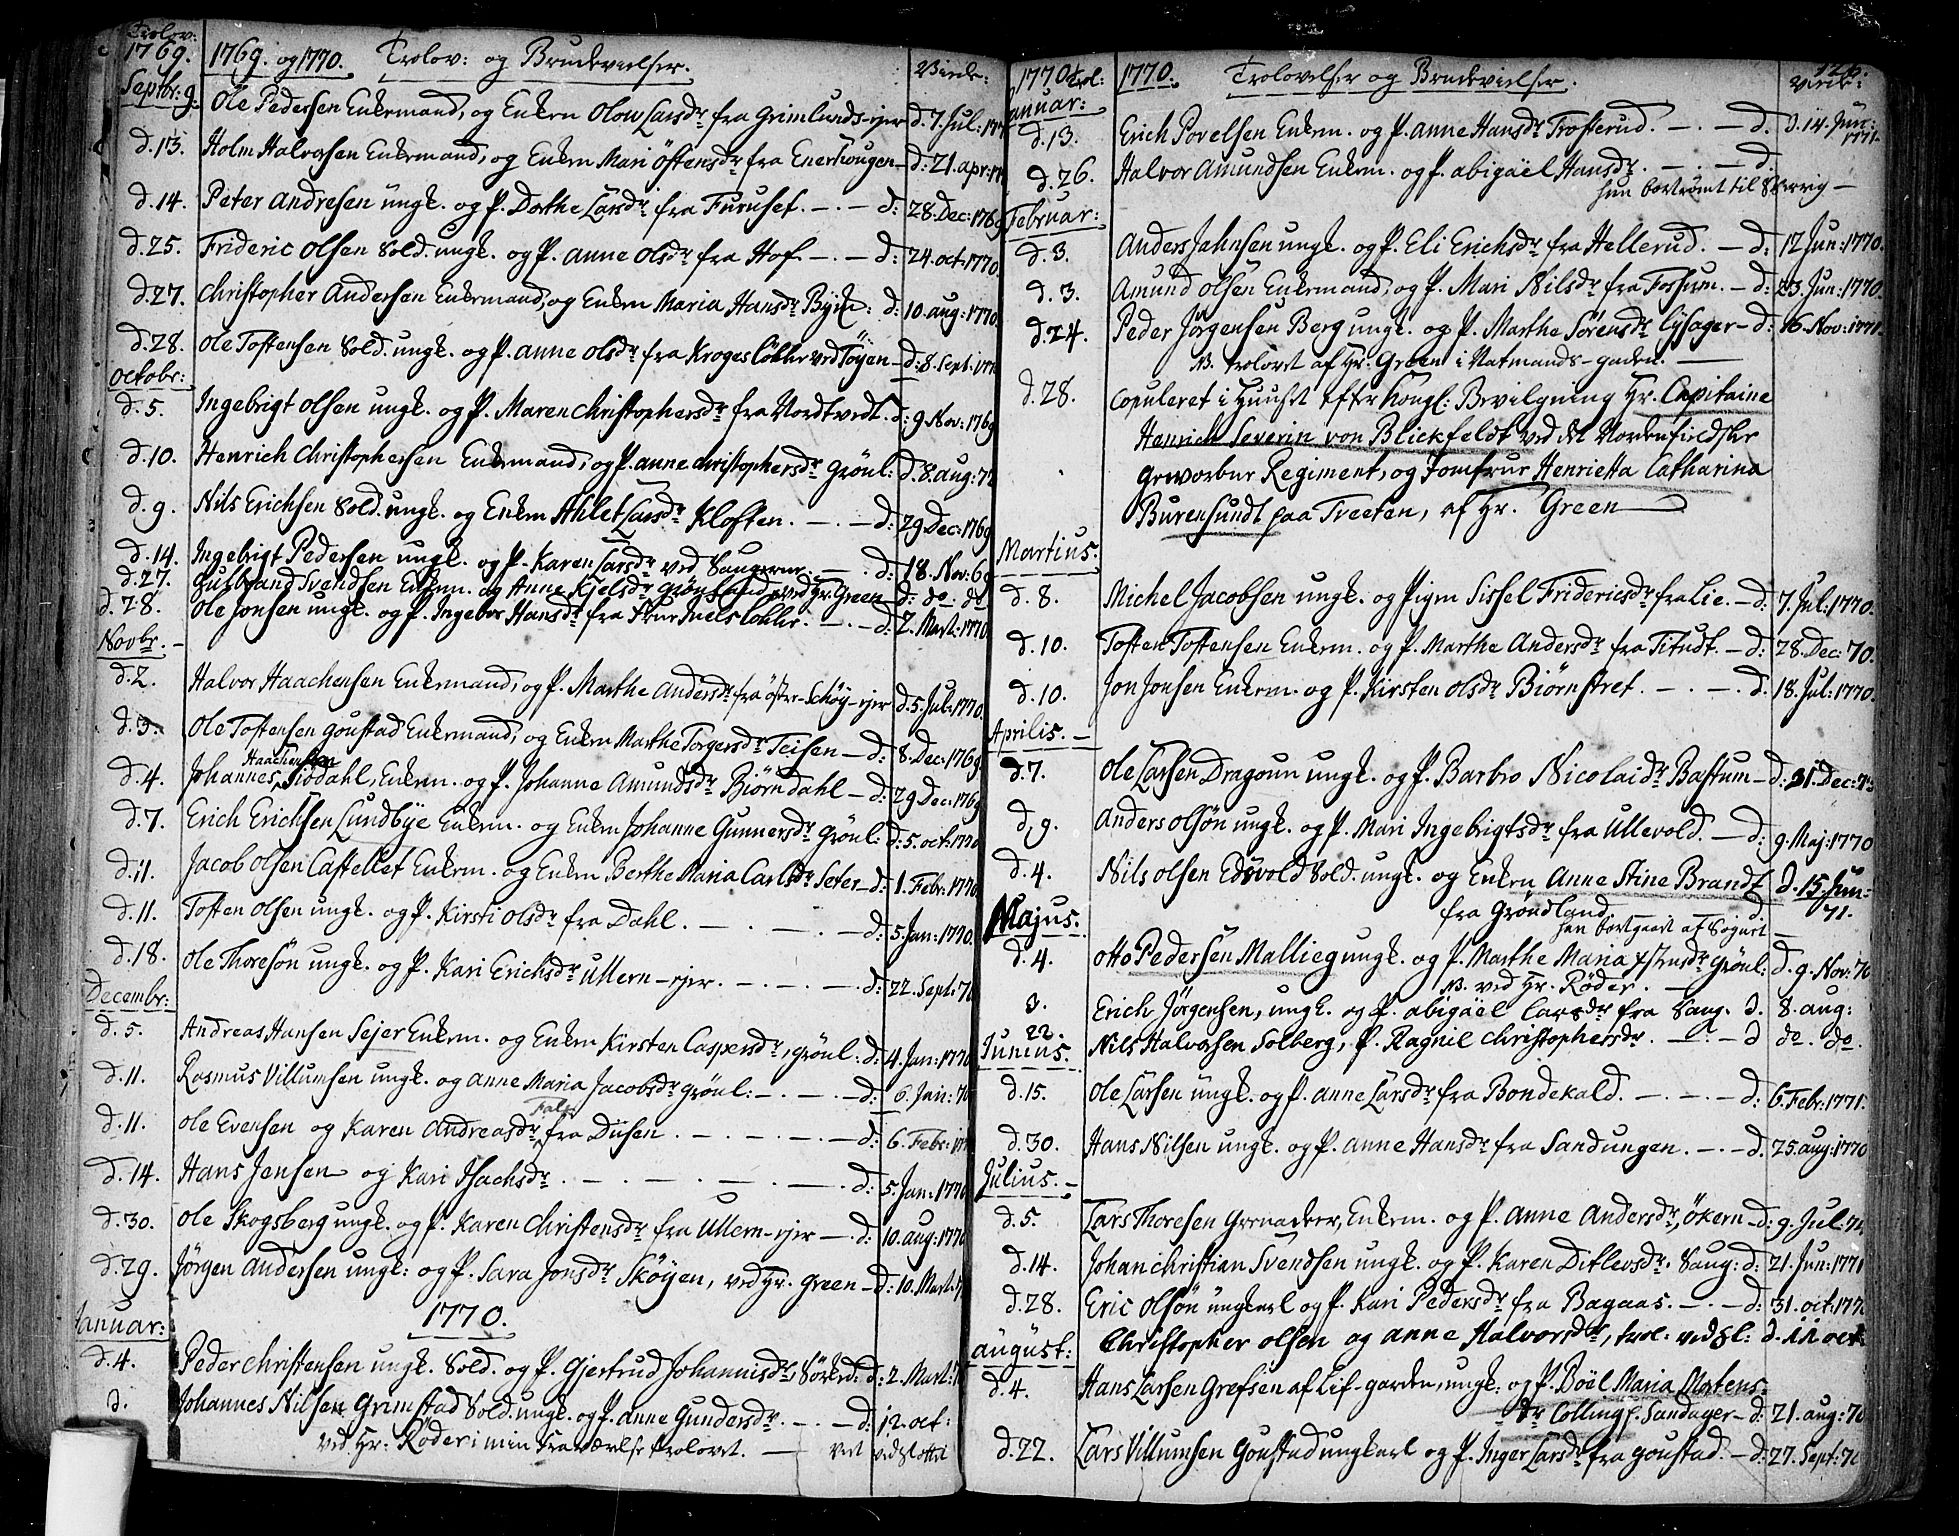 Trolov:
1769.
1769. og 1770. Trolov: og Brudevielser. Viede:
Septbr: 9. Ole Pedersen Enkemand, og Enken Olow Larsdr fra Grimlunds-ejer d. 7. Jul: 177
d. 13. Holm Halvorsen Enkemand, og Enken Mari Östensdr fra Enerhougen - d: 21. apr: 177
d. 14. Peter Andresen ungk. og P. Dorthe Larsdr fra Furuset. - . - d: 28. Dec: 1769
d. 25. Frideric Olsen Sold. ungk. og P. Anne Olsdr fra Hof. - . - d: 24. oct: 1770.
d. 27. Christopher Andersen Enkemand, og Enken Maria Hansdr d: 10. aug: 1770.
d. 28. Ole Tostensen Sold. ungk. og P. Anne Olsdr fra Krogesløkke ved Töyen - d: 8. Sept: 177
Octobr:
d. 5. Ingebrigt Olsen ungk. og P. Maren Christophersdr fra Nordtvedt. d: 9. Nov: 1769
d. 10. Henrich Christophersen Enkemand, og P. Anne Christophersdr Grönl: d. 8. aug: 7
d. 9. Nils Erichsen Sold. ungk. og Enken Ahlet Larsdr Kloften. - . - d: 29 Dec: 1769
d. 14. Ingebrigt Pedersen ungk. og P. Karen Larsdr ved Saugerne. - . d: 18. Nov: 69
d. 27. Gulbrand Svendsen Enkm. og Anne Kjelsdr Grönland, ved Hr. Green d: do: do
d. 28. Ole Jonsen ungk. og P. Ingebor Hansdr fra løkke. - . - d: 2. Mart: 1770
Novbr. -
d. 2. Halvor Haachensen Enkemand, og P. Marthe Andersdr fra öster-Schöy-ejer d. 5. Jul: 1770.
d. 3. Ole Tostensen Goustad Enkemand, og Enken Marthe Torgersdr Teisen - d: 8. Dec: 1769
Haachensen
d. 4. Johannes Siödahl, Enkm. og P. Johanne Amundsdr Björndahl - d: 29 Dec: 1769
d. 7. Erich Erichsen Lundbye Enkm. og Enken Johanne Gunnersdr Grönl: d: 5. oct: 1770
d. 11. Jacob Olsen Castellet Enkm. og Enken Berthe Maria Carlsdr Seter - d: 1. Febr: 1770
d. 11. Tosten Olsen ungk. og P. Kirsti Olsdr fra Dahl. - . - . - d: 5. Jan: 1770.
d. 18. Ole Thoresön ungk. og P. Kari Erichsdr Ullern-ejer. - . - . - d: 22. Sept: 70
Decembr:
d. 5. Andreas Hansen Sejer Enkm. og Enken Kirsten Caspersdr, Grönl: d: 4. Jan: 1770
d. 11. Rasmus Villumsen ungk. og Anne Maria Jacobsdr Grönl: - . - . - d: 6. Jan: 70
Falch
d. 11. Ole Evensen og Karen Andreasdr fra Disen. - . - . - . - d: 6. Febr: 177
d. 14. Hans Jensen og Kari Isachsdr. - . - . - . - d: 5. Jan: 1770
d. 30. Ole Skogsberg ungk. og P. Karen Christensdr fra Ullern-ejer - . d: 10. aug: 1770
d. 29. Jörgen Andersen ungk: og P. Sara Jonsdr Sköyen, ved Hr. Green - d: 10. Mart: 7
1770.
Januar:
d. 4. Peder Christensen ungk. Sold. og P. Gjertrud Johannisdr, d: 2. Mart: 7
d. Johannes Nilsen Grimstad Sold. ungk. og P. Anne Gundersdr. - . - d: 12. oct:
ved Hr: Röder i min Fraværelse trolovet. - viet ved Slottet
1770. Trol: 1770. Trolovelser og Brudevielser. Viede:
Januar:
d. 13. Erich Povelsen Enkm. og P. Anne Hansdr Trosterud. - . - d. D. 14. Jun: 1771.
d. 26. Halvor Amundsen Enkm. og P. Abigäel Hansdr. - . - d.
hun bortrömt til Sverrig -
Februar:
d. 3. Anders Jahnsen ungk. og P. Eli Erichsdr fra Hellerud. - d: 12 Jun: 1770.
d. 3. Amund Olsen Enkemand, og P. Mari Nilsdr fra Fossum. - d: 23. Jun: 1770.
d. 24. Peder Jörgensen Berg ungk. og P. Marthe Sörensdr Lysager - d: 16. Nov: 1771.
NB. trolovet af Hr: Green i Natmands-gaden. -
d. 28. Copuleret i Huuset efter Kongl: Bevilgning Hr. Capitaine
Henrich Severin von Blickfeldt ved det Nordenfieldske
Geworbne Regiment, og Jomfrue Henrietta Catharina
Burensundt paa Tveeten, af Hr. Green
Martius.
d. 8. Michel Jacobsen ungk. og Pigen Sissel Fridericsdr fra Lie. - d: 7. Jul: 1770.
d. 10. Tosten Tostensen Enkm. og P. Marthe Andersdr fra Titudt. - d: 28. Dec: 70.
d. 10. Jon Jonsen Enkm. og P. Kirsten Olsdr Biörnstret. - . - . d. 18. Jul: 1770.
Aprilis. -
d. 7. Ole Larsen Dragoun ungk. og P. Barbro Nicolaidr Bastum - d: 31. Dec: 7
d. 9. Anders Olsön ungk. og P. Mari Ingebrigtsdr fra Ullevold. - d: 9. Maj: 1770
d. 4. Nils Olsen Edsvold Sold. ungk. og Enken Anne Stine Brandt d. 15. Jun:
fra Gröndland. d. 71.
han bortgaaet af Sognet -
Majus.
d. 4. Otto Pedersen Mallieg ungk. og P. Marthe Maria Xstensdr Grönl: d. 9. Nov: 70
NB. ved Hr. Röder. -
3. Erich Jörgensen, ungk. og P. Abigäel Larsdr fra Saug. d. 8. aug:
22. Nils Halvorsen Solberg, P. Ragnil Christophersdr. - . - d do. do.
Junius.
d. 15. Ole Larsen ungk. og P. Anne Larsdr fra Bondekald. - . - . - d: 6. Febr: 1771.
d. 30. Hans Nilsen ungk. og P. Anne Hansdr fra Sandungen. - . - d. 25. aug: 1770
Julius. -
d. 5. Lars Thoresen Grenadeer, Enkm. og P. Anne Andersdr, Ökern - d: 9. Jul: 7
d. 14. Johan Christian Svendsen ungk. og P. Karen Ditlevsdr. Saug: d: 21. Jun: 1771
d. 28. Eric Olsön ungkarl og P. Kari Pedersdr fra Bagaas. - . - d: 31. oct: 177
Christopher Olsen og Anne Halvorsdr, trol: ved Sl: d. 11 oct
August:
d. 4. Hans Larsen Grefsen af Lif-garden, ungk: og P. Böel Maria Mortens-
dr Colling f. Sandager - d: 21. aug: 70
d. 22. Lars Villumsen Goustad ungkarl og P. Inger Larsdr fra Goustad. - d: 27. Sept: 70